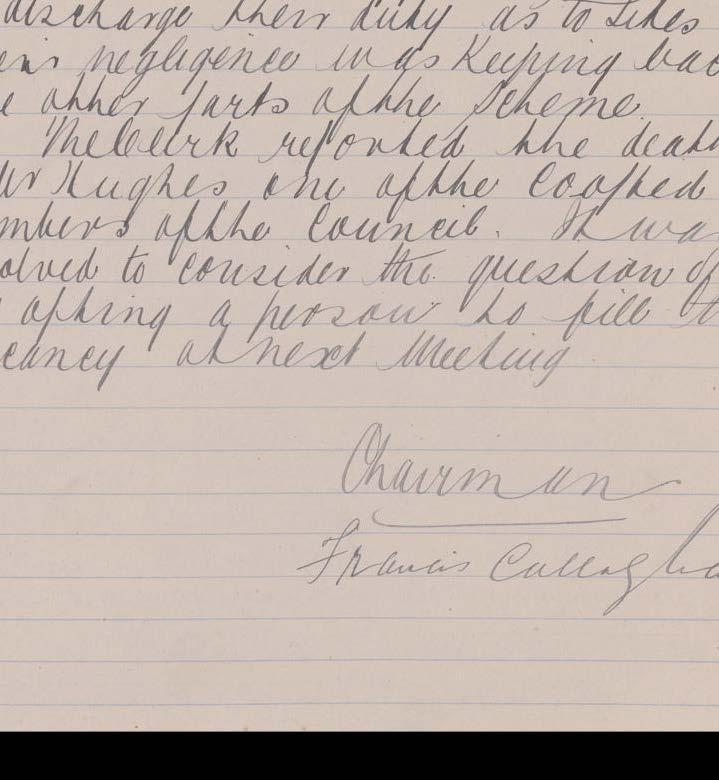 discharge their duty as to Sites
negligence was Keeping bac
e other parts of the Scheme.
The Clerk reported the death
Mr Hughes one of the Coopted
mbers of the Council. It was
olved to consider the question of
opting a person to fill t
cancy at next Meeting
Chairman
Francis Callagha